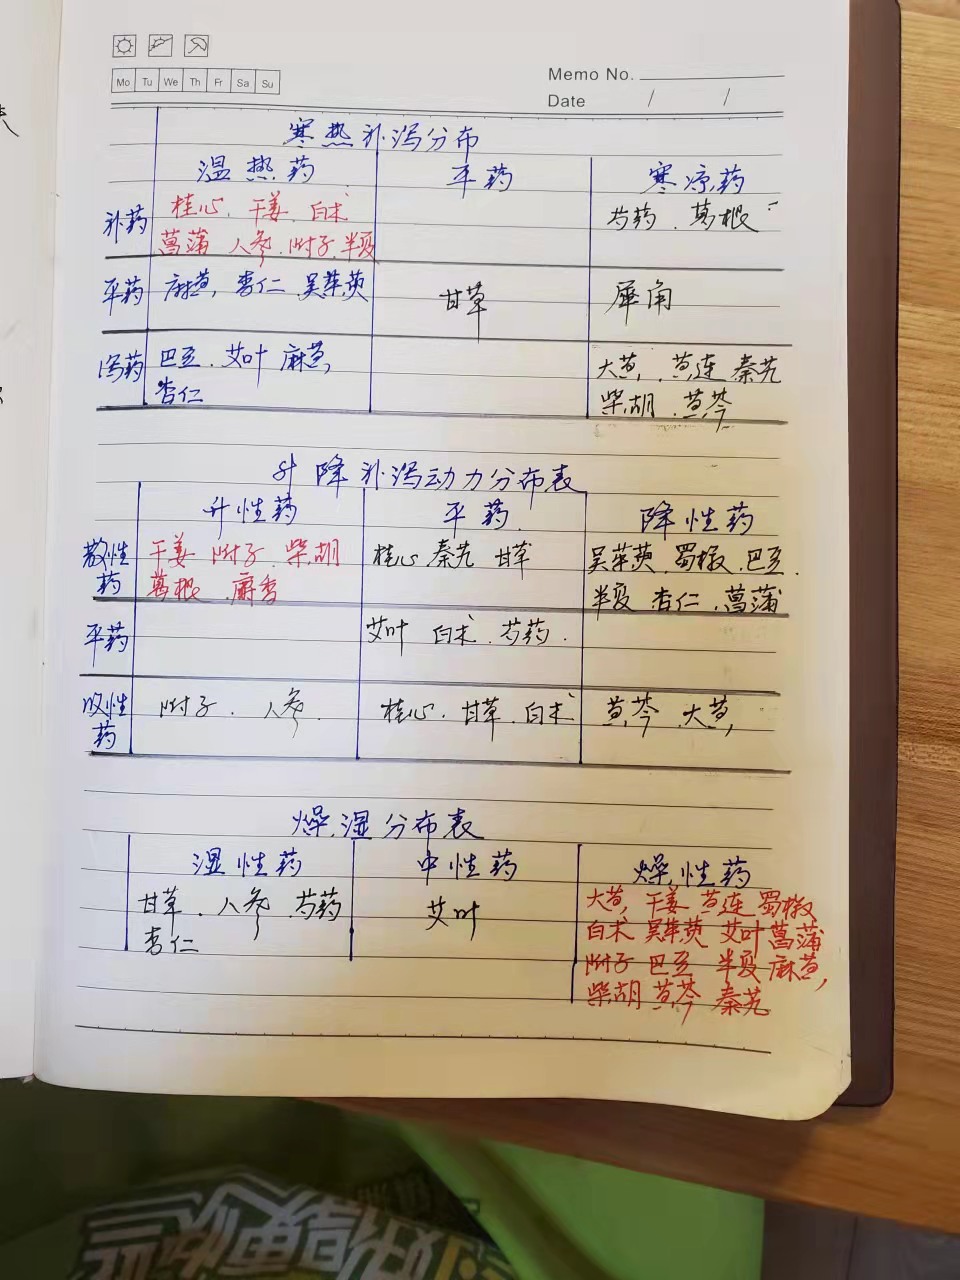 Mo Tu We Th Fr Sa Su
Memo No.
Date / /
寒热补泻分布
温热药 平药 寒凉药
补药 桂心、干姜、白术 芍药、葛根
菖蒲 人参、附子、半夏
平药 麻黄，杏仁、吴茱萸 甘草 犀角
泻药 巴豆、艾叶 麻黄， 大黄，黄连 秦艽
杏仁 柴胡、黄芩
升降补泻动力分布表
升性药 平药 降性药
散性药 干姜 附子、柴胡 桂心 秦艽 甘草 吴茱萸、蜀椒、巴豆、
葛根、麝香 半夏 杏仁、菖蒲
平药 艾叶 白术、芍药、
收性药 附子、人参、 桂心、甘草、白术 黄芩 大黄，
燥湿分布表
湿性药 中性药 燥性药
甘草、人参、芍药 艾叶 大黄，干姜 黄连 蜀椒
杏仁 白术 吴茱萸 艾叶 菖蒲
附子 巴豆 半夏 麻黄，
柴胡 黄芩 秦艽